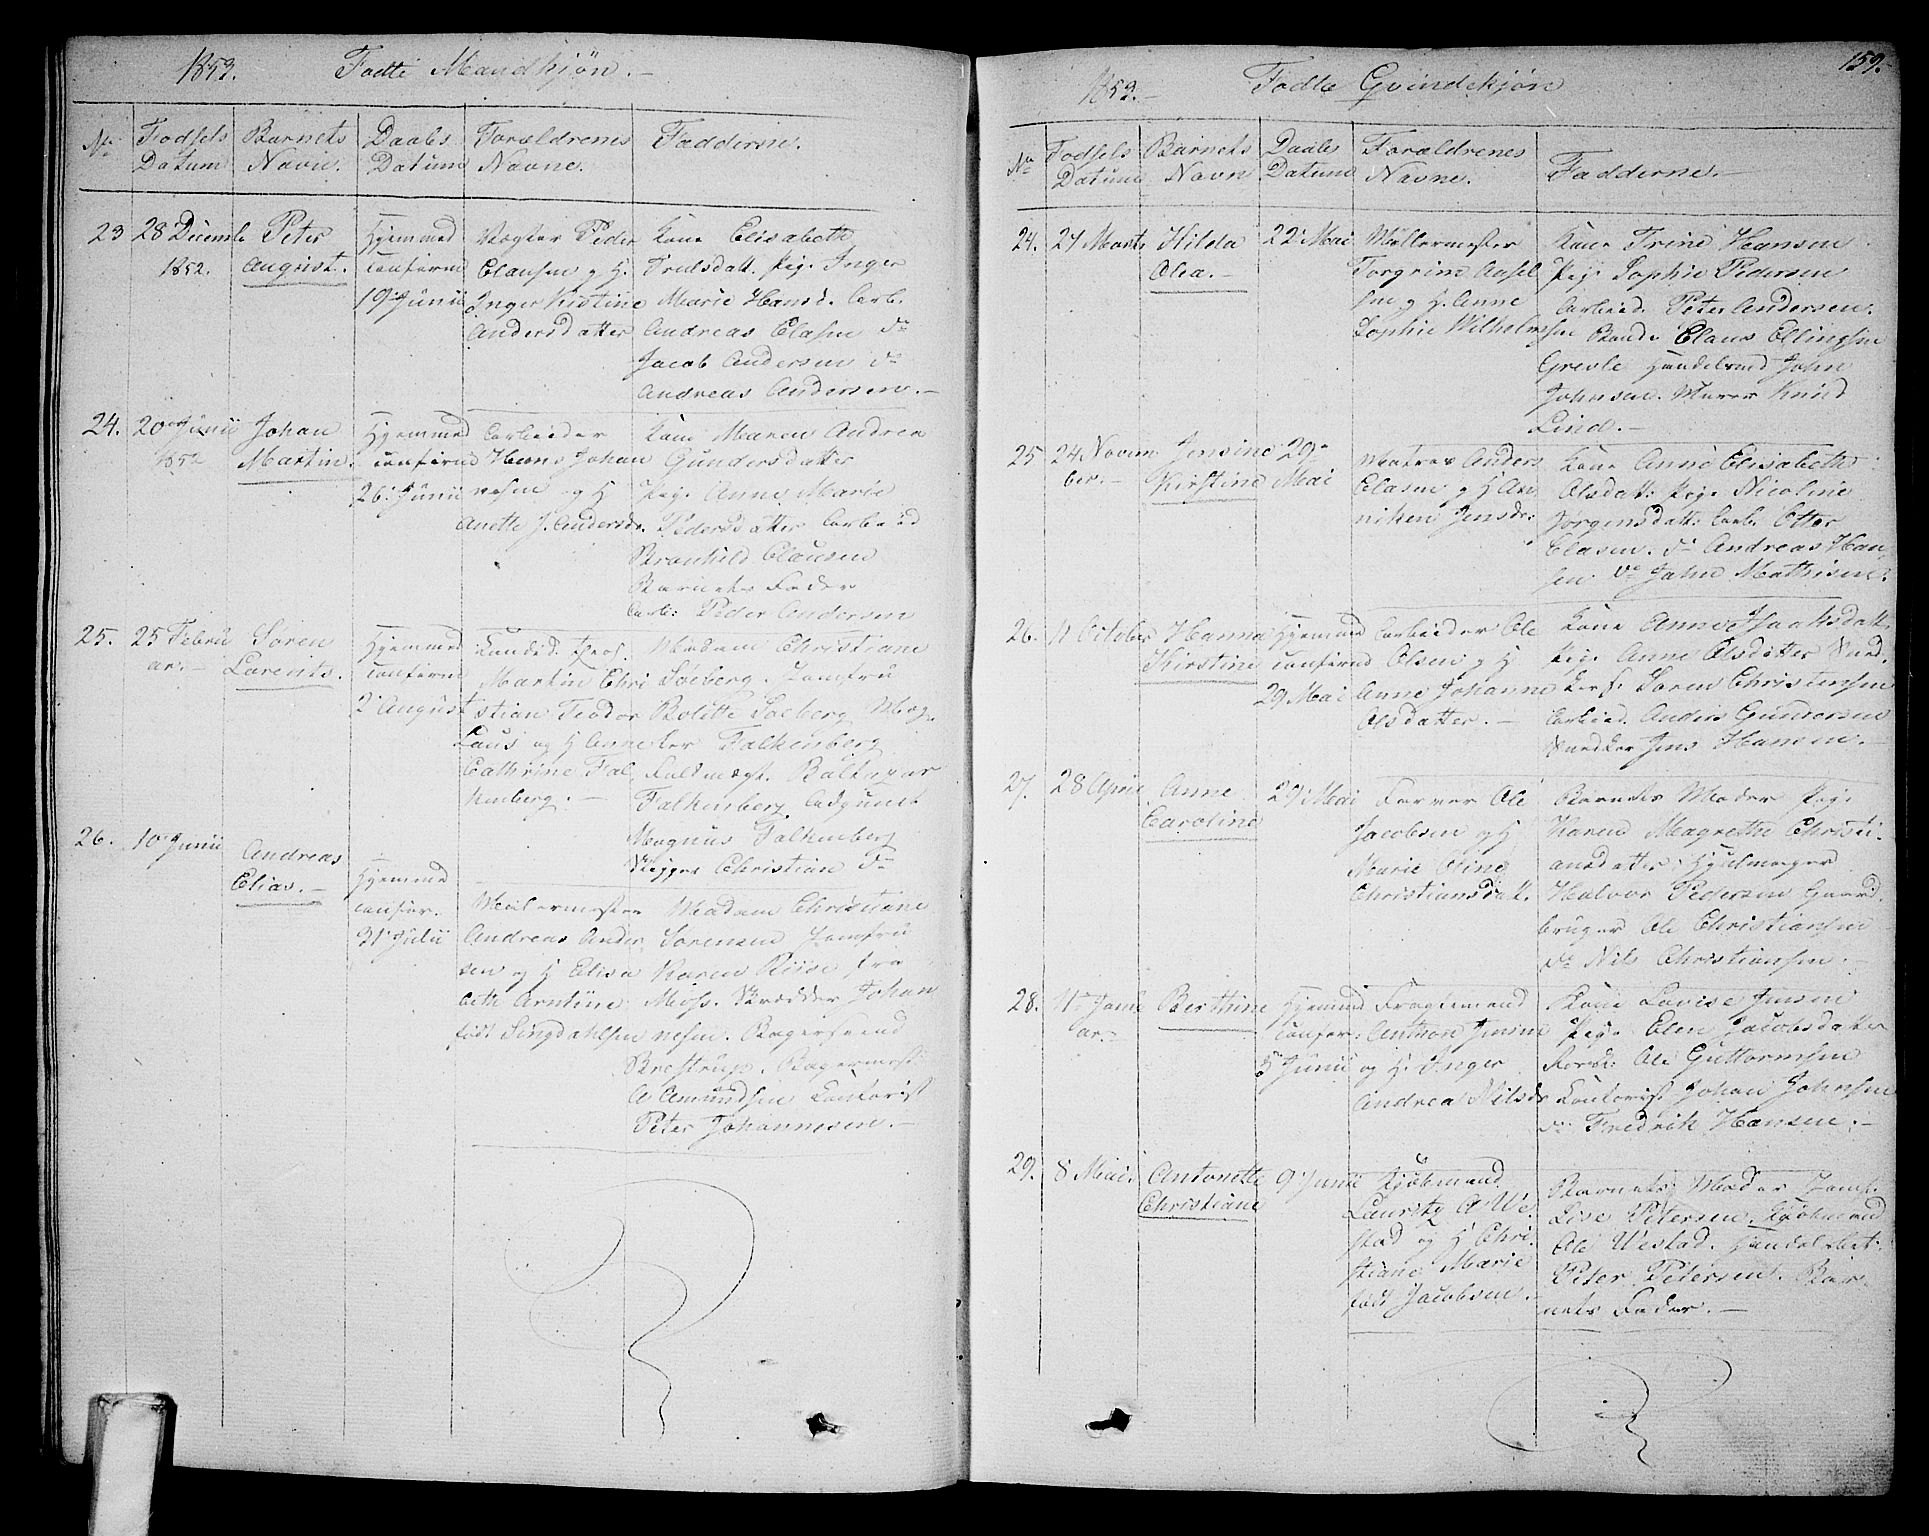 1853. Fødte Mandkjøn.
No Fødsels Datum Barnets Navn. Daabs Datum Forældrenes Navne. Fadderne.
23 28 Decembr 1852. Peter August. Hjemmed confirm 19 Junii
Vægter Peder
Clausen g H.
Inger Kistine
Andersdatter
Kone Elisabeth
Trulsdatt. Pige Inger
Marie Hansd. Arb.
Andreas Clasen do
Jacob Andersen do
Andreas Andersen.
24. 20 Junii 1852 Johan Martin. Hjemmed confirmd 26 Junii
Arbeider
Hans Johan
nesen og H
Anette J. Andersdr.
Kone Maren Andrea
Gundersdatter
Pige Anne Marie
Pedersdatter Arbeid
Bronhild Clausen
Barnets Fader
Arb: Peder Andersen
25. 25 Febru
ar. Søren Larents. Hjemmed confirm 2 August
Kandid. theol.
Martin Chri
stian Teodor
Laus og H Anne
Cathrine Fal
kenberg.
Madam Christiane
Søeberg. Jomfru
Bolitte Søeberg
Falkenberg
Fuldmægt. Baltazar
Falkenberg Adjunct
Magnus Falkenberg
Skipper Christian do
26. 10 Junii Andreas Elias. Hjemmed confir. 31 Julii
Malermester
Andreas Ander
sen og H Elisa
beth Arntine
født Lingdahlsen
Madam Christiane
Sørensen Jomfru
Karen Riise fra
Moss. Skrædder Johan
nesen. Bagersvend
Brestrup. Bagermest.
A Amundsen Kontorist
Peter Johannesen.
159.
1853. Fødte Qvindekjøn
No Fødsels Datum Barnets Navn Daabs Datum Forældrenes Navne. Fadderne.
24. 27 Marts Hilda Olea. 22 Mai
Møllermester
Torgrim Aksel
sen g H. Anne
Sophie Wilhelmsen
Kone Trine Hansen
Pige Sophie Pedersen
Arbeid. Peter Andersen
Bonde Claus Ellingsen
Grevle Handelsmd John
Johnsen. Murer Knud
Lind.
25 24 Novem
ber. Jensine Kirstine 29 Mai
Matros Anders
Clasen g H An
niken Jensdr:
Kone Anne Elisabeth
Olsdatt. Pige Nicoline
Jørgensdatt: Arb. Otter
Clasen. do Andreas Han
sen do John Mathisen.
26. 11 October Hanna Kirstine Hjemmed confirmd 29 Mai
Arbeider Ole
Olsen g H
Anne Johanne
Olsdatter.
Kone Anne Isaksdatt.
Pige Anne Olsdatter Sned
kers. Søren Christensen
Arbeid. Anders Gundersen
Snedker Jens Hansen.
27. 28 April Anne Caroline 29 Mai
Farver Ole
Jacobsen og H
Marie Oline
Christiansdatt.
Barnets Moder Pige
Karen Magrethe Christi
ansdatter. Hjulmager
Halvor Pedersen Gaard
bruger Ole Christiansen
do Nils Christiansen.
28. 11 Janu
ar. Berthine Hjemmed confir: 5 Junii
Fragtemand
Anthon Jenine
og H. Inger
Andrea Nilsdr
Kone Lovise Jensen
Pige Elen Jacobsdatter
Ole Guttormsen
Kontorist Johan Johnsen
do Fredrik Hansen.
29. 8 Mai Antonette Christiane 9 Junii
Kjøbmand
Lauritz A We
stad og H Chri
stiane Marie
født Jacobsen.
Barnets Moder Jomf.
Lise Petersen. Kjøbmand
Ole Westad. Handelsbet.
Peter Petersen. Bar
nets Fader.